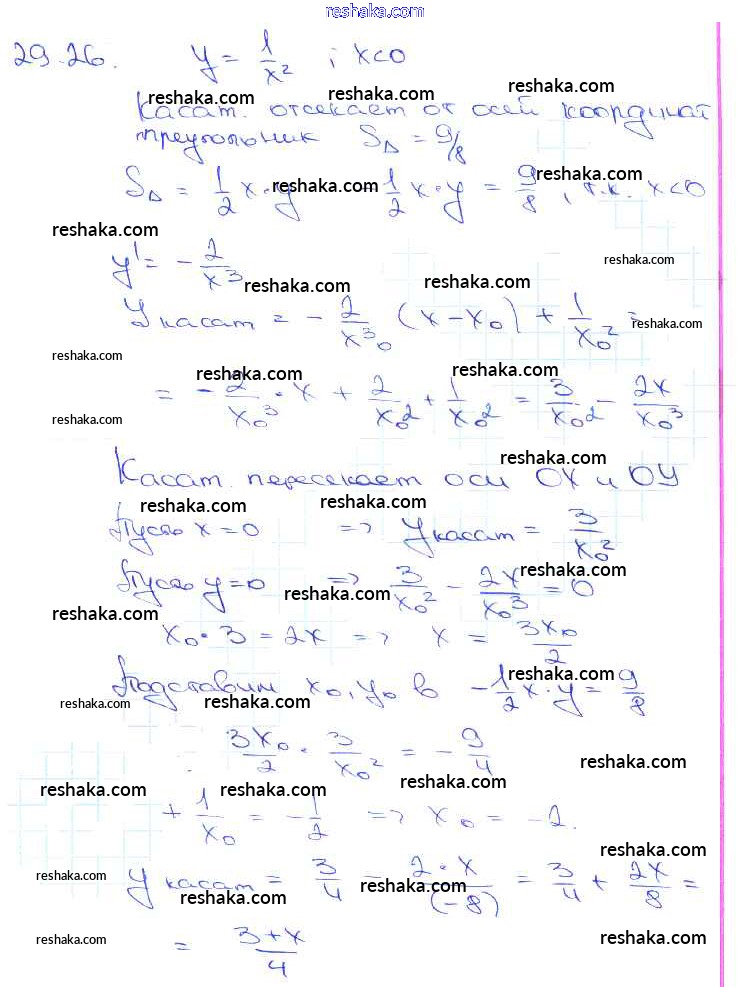 reshaka.com
29.26. y = 1/x² ; x<0
reshaka.com reshaka.com reshaka.com
Касат. отсекает от осей координат
треугольник S△ = 9/8
reshaka.com
S△ = 1/2 x·y = -1/2 x·y = 9/8, т.к. x<0
reshaka.com
reshaka.com
y' = -2/x³
reshaka.com
reshaka.com reshaka.com
y касат = -2/x₀³ (x-x₀) + 1/x₀² =
reshaka.com
reshaka.com
reshaka.com reshaka.com
= -2/x₀³ · x + 2/x₀² + 1/x₀² = 3/x₀² - 2x/x₀³
reshaka.com
reshaka.com
Касат. пересекает оси OX и OY
reshaka.com reshaka.com
Пусть x=0 => y касат = 3/x₀²
reshaka.com
Пусть y=0 => 3/x₀² - 2x/x₀³ = 0
reshaka.com
reshaka.com
x₀·3 = 2x => x = 3x₀/2
reshaka.com
Подставим x₀, y₀ в -1/2 x·y = 9/8
reshaka.com reshaka.com
3x₀/2 · 3/x₀² = -9/4
reshaka.com
reshaka.com reshaka.com
+ 1/x₀ = -1/2 => x₀ = -2.
reshaka.com
y касат = 3/4 - 2·x/(-8) = 3/4 + 2x/8 =
reshaka.com reshaka.com reshaka.com
= 3+x/4
reshaka.com reshaka.com